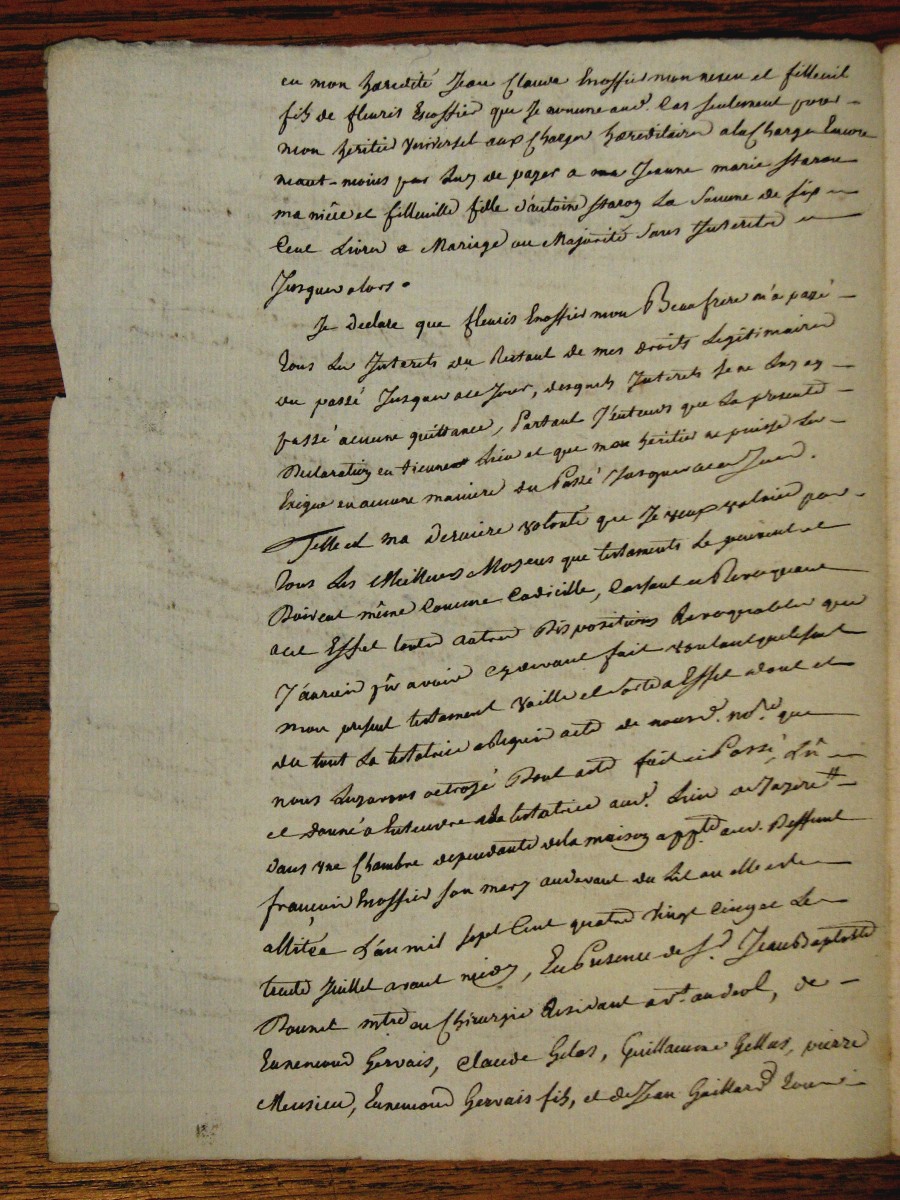 en mon hærédité Jean Claude Escoffier mon neveu et filleuil
fils de fleuris Escoffier que Je nomme aud. Cas seulement pour
mon heritier universel aux Charges hæreditaires a la Charge Encore
neant-moins par Luy de payer a Jeanne marie
ma niéce et filleuille fille d'antoine La Somme de six
Cent Livres a Mariage ou Majorité Sans Interetes
Jusques alors.
Je Declare que fleuris Escoffier mon Beaufrere m'a payé
Tous Les Interets du Restant de mes droits Legitimaires
du passé Jusques a ce Jour, desquels Interets Je ne Luy ay
passé aucune quittance, Partant J'entends que La presente
Declaration en tienne Lieu et que mon heritier ne puisse Les
Exiger en aucune maniere du Passé Jusques a ce Jour.
Telle est ma derniere volonté que Je veux valoir par
Tous Les Meilleurs Moyens que testaments Le peuvent et
Doivent même Comme Codicille, Cassant et Revoquant
a cet Effet toutes autres Dispositions Revoquables que
J'aurois pû avoir cy devant fait voulant que le Seul
mon present testament vaille et sorte a Effet a dont et
du tout La testatrice a Requis acte de nous d. no.re que
nous Luy avons octroyé Dont acte fait et Passé, Lû
et donné a Entendre a la testatrice aud. Lieu de
dans une Chambre dependante de la maison app.te aud. Deffunt
françois Escoffier son mary au devant du Lit ou elle est
allitée L'an mil sept Cent quatre vingt Cinq et Le
trente Juillet avant midy, En Presence de S.r Jean Baptiste
Bonnet m.tre en Chirurgie Residant de
Ennemond Gervais, Claude Gelas, Guillaume Gellas, pierre
Meusieu, Ennemond Gervais fils, et de Jean Gaillard Tous